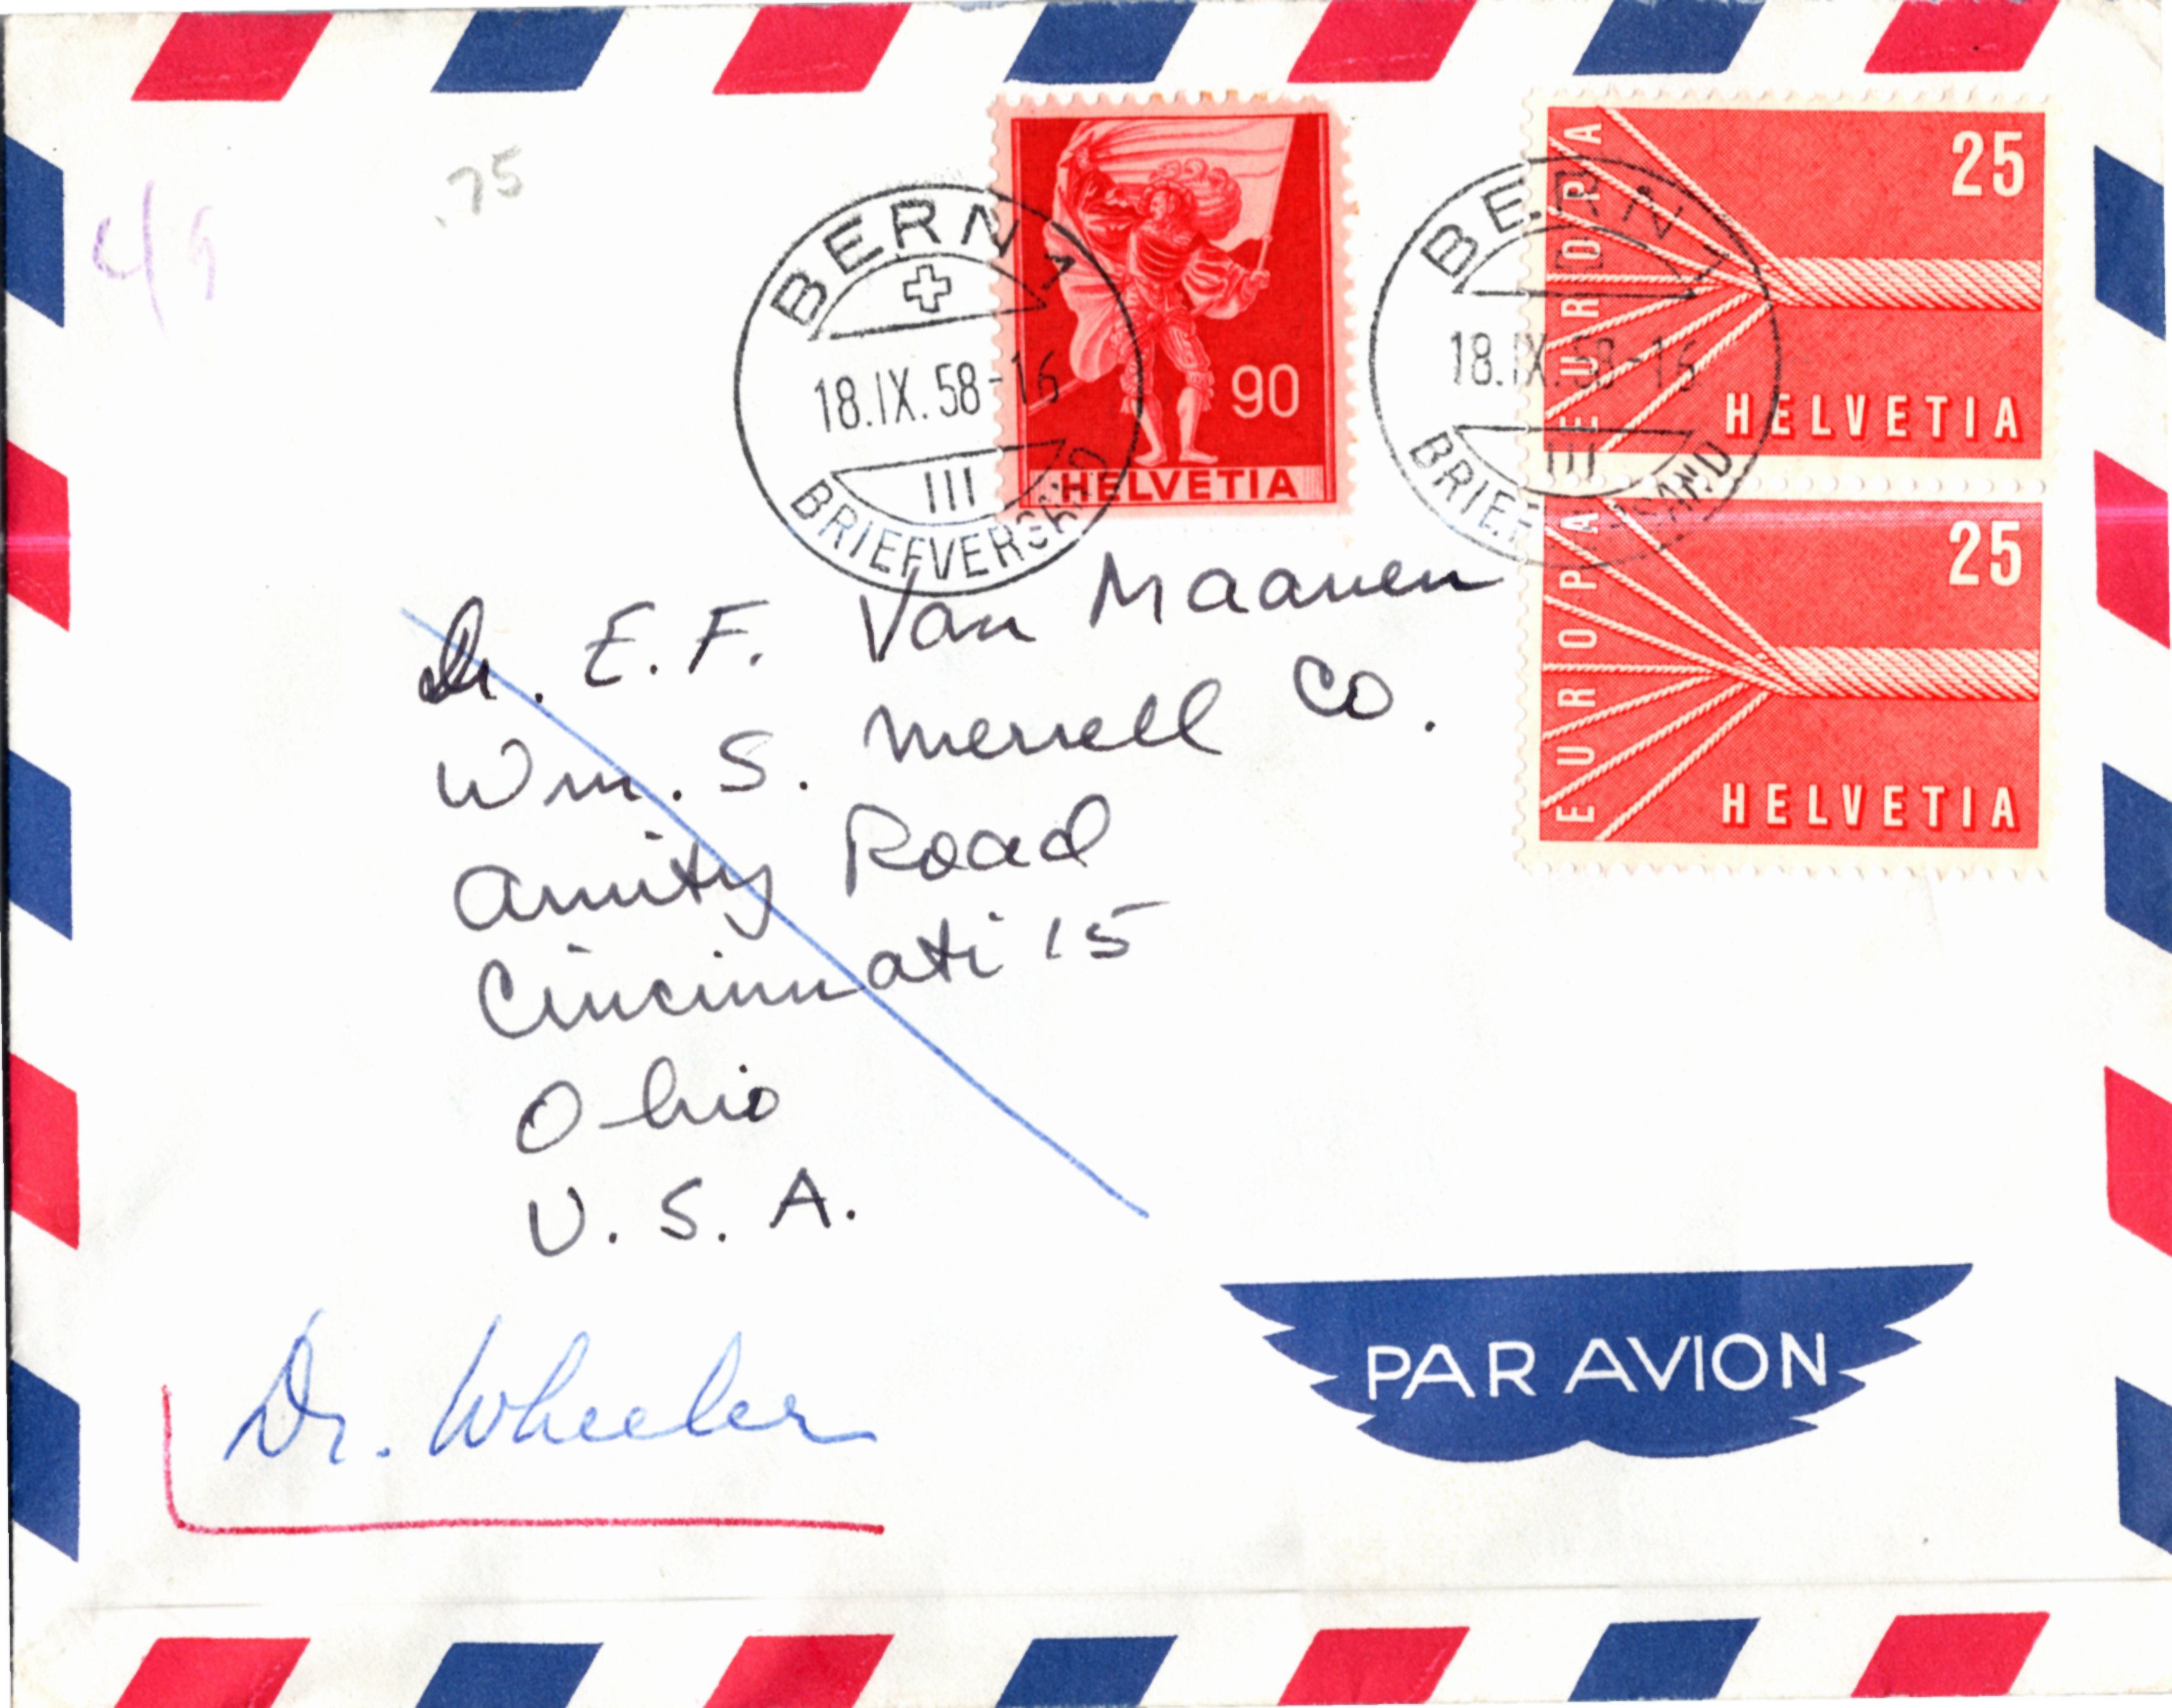 .75
4/9
BERN 1
18.IX.58-16
III
BRIEFVERSAND
90
HELVETIA
BERN 1
18.IX.58-16
III
BRIEFVERSAND
EUROPA
25
HELVETIA
EUROPA
25
HELVETIA
Dr. E. F. Van Maanen
Wm. S. Merrell Co.
Amity Road
Cincinnati 15
Ohio
U. S. A.
Dr. Wheeler
PAR AVION